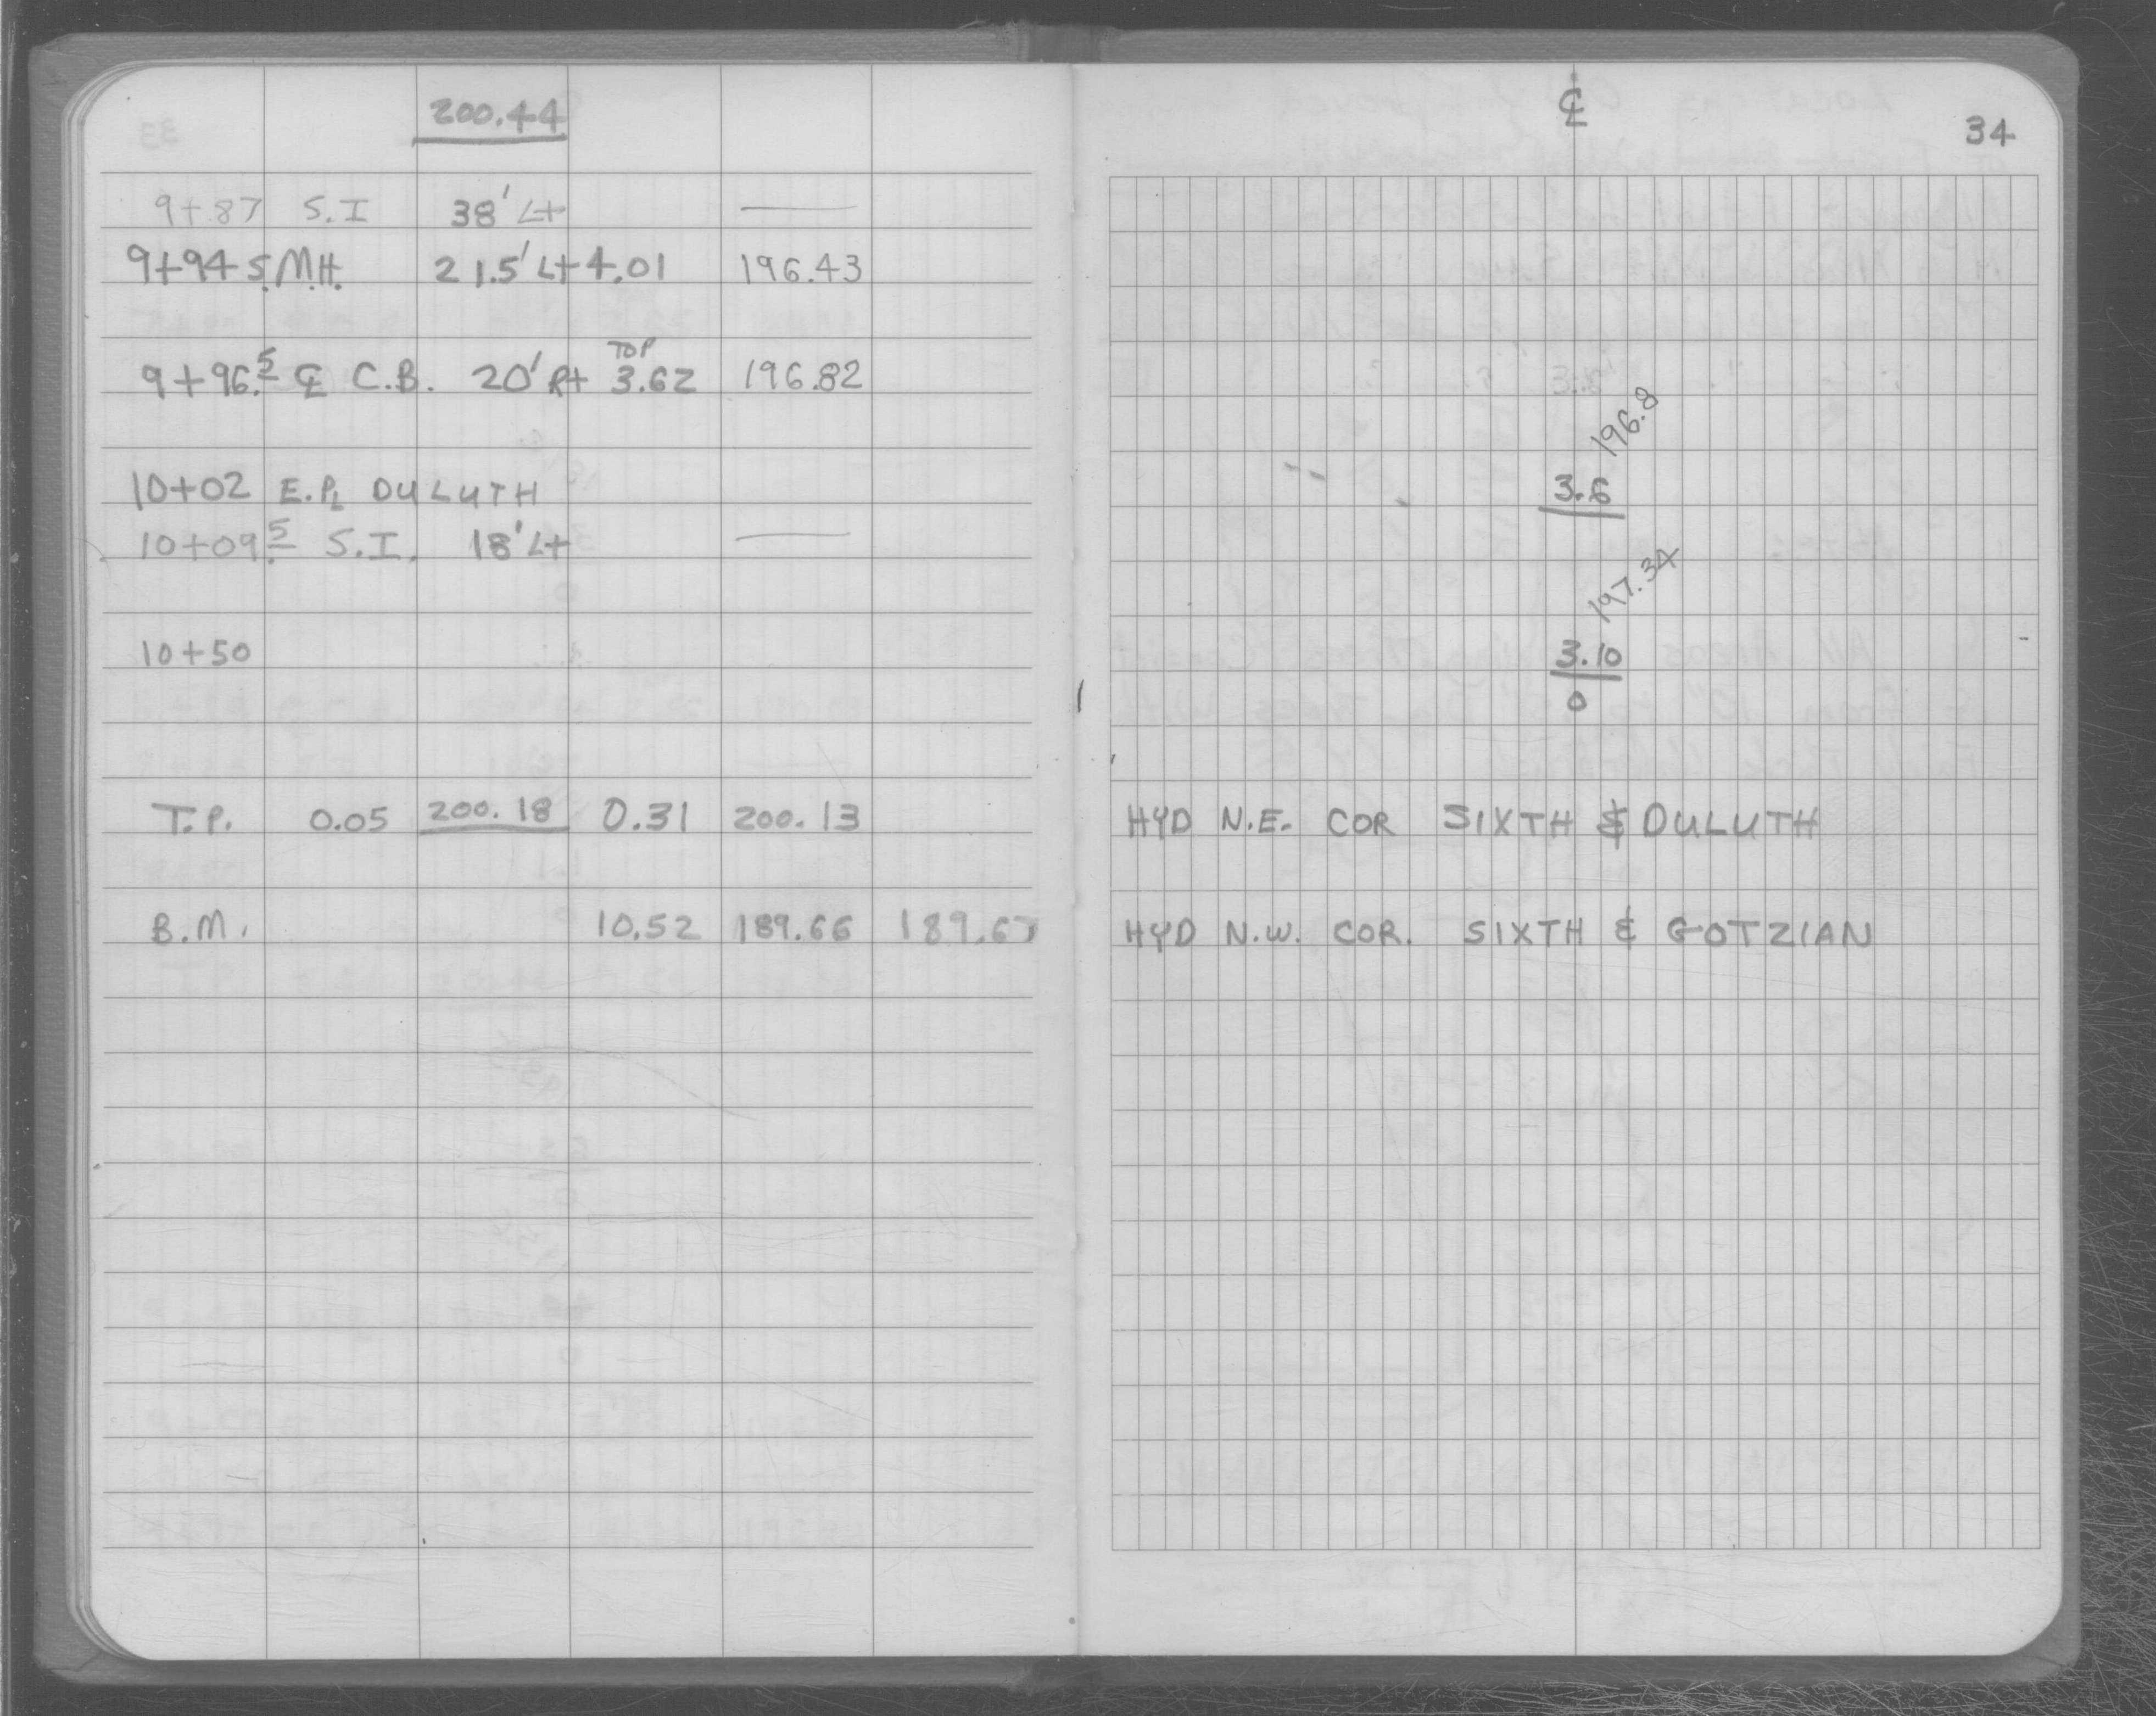 200.44
9+87 S.I 38' Lt —
9+94 S.M.H. 21.5' Lt 4.01 196.43
TOP
9+96.5 ℄ C.B. 20' Rt 3.62 196.82
10+02 E.PL DULUTH
10+09.5 S.I. 18' Lt —
10+50
T.P. 0.05 200.18 0.31 200.13
B.M. 10.52 189.66 189.67
℄
34
196.8
3.6
197.34
3.10
0
HYD N.E. COR SIXTH & DULUTH
HYD N.W. COR. SIXTH & GOTZIAN